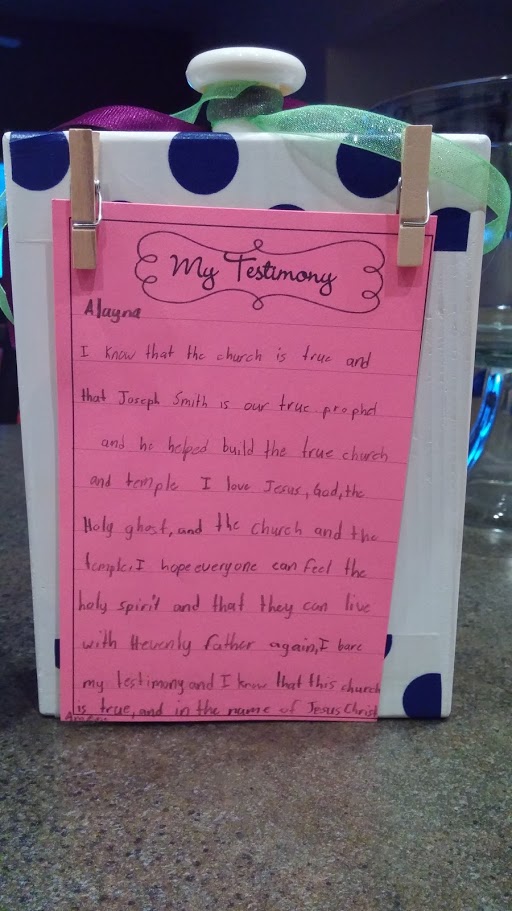 My Testimony
Alayna
I know that the church is true and
that Joseph Smith is our true prophet
and he helped build the true church
and temple I love Jesus, God, the
Holy ghost, and the church and the
temple, I hope everyone can feel the
holy spirit and that they can live
with Hevenly father again, I bare
my testimony and I know that this church
is true, and in the name of Jesus Christ
Amen